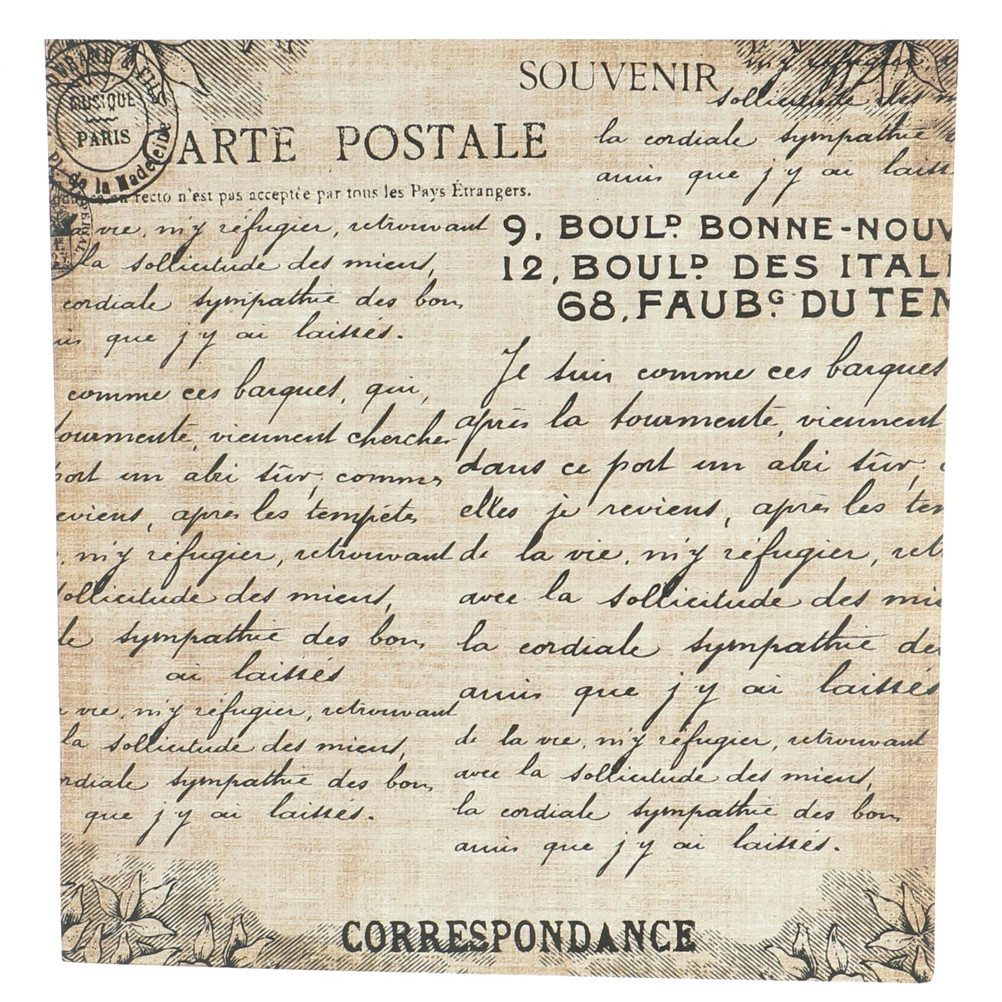 SOUVENIR
MUSIQUE
PARIS
Pl. de la Madeleine
CARTE POSTALE
recto n'est pas acceptée par tous les Pays Étrangers.
m'y réfugier,
sollicitude des m
la cordiale sympathie
amis que j'y ai laiss
la vie, m'y réfugier, retrouvant
la sollicitude des miens,
cordiale sympathie des bons
is que j'y ai laissés.
9, BOULD BONNE-NOUV
12, BOULD DES ITALI
68, FAUBG DU TEM
comme ces barques, qui,
tourmente, viennent cherche
port un abri sûr, comme
eviens, après les tempêtes
, m'y réfugier, retrouvant
sollicitude des miens,
le sympathie des bons
ai laissés
vie, m'y réfugier, retrouvant
la sollicitude des miens,
rdiale sympathie des bons
que j'y ai laissés.
Je suis comme ces barques
après la tourmente, viennent
dans ce port un abri sûr,
elles je reviens, après les tem
de la vie, m'y réfugier, ret
avec la sollicitude des mie
la cordiale sympathie de
amis que j'y ai laissés
de la vie, m'y réfugier, retrouvant
avec la sollicitude des miens,
la cordiale sympathie des bons
amis que j'y ai laissés.
CORRESPONDANCE